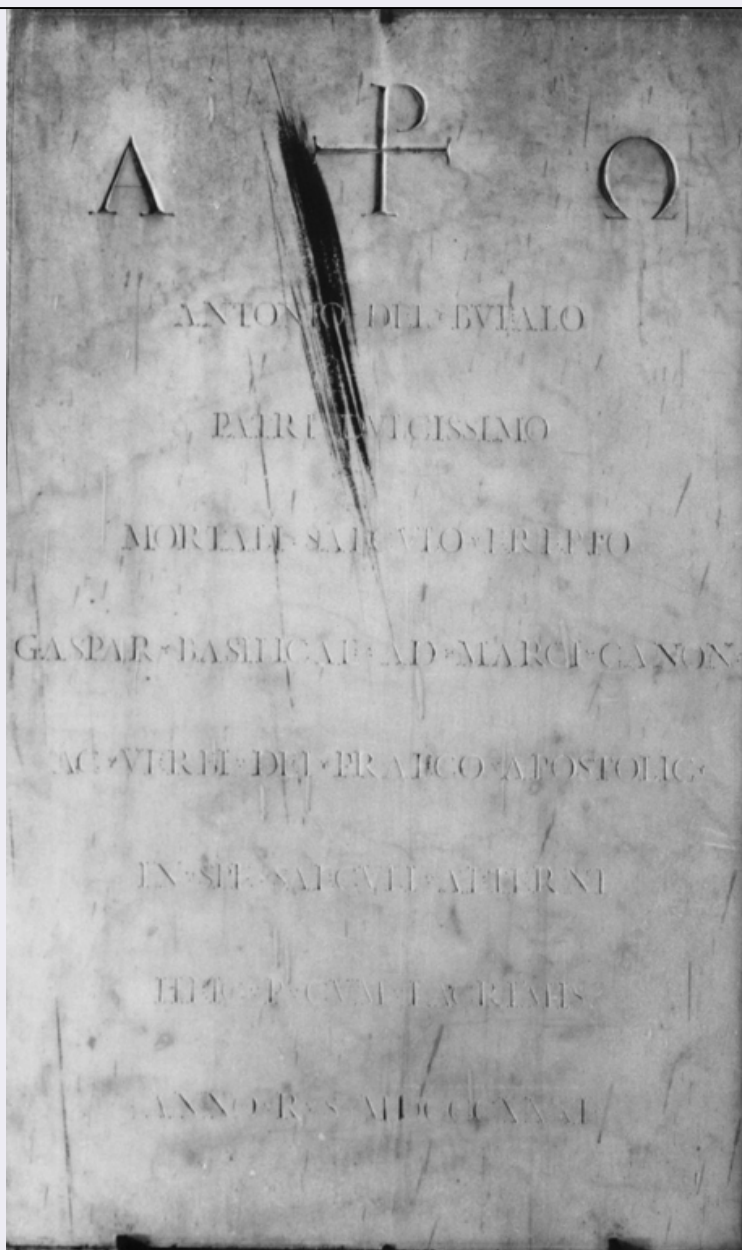 Α ⳨ Ω
ANTONIO · DEL · BVFALO
PATRI DVLCISSIMO
MORTALI · SAECVLO · EREPTO
GASPAR · BASILICAE · AD · MARCI · CANON ·
AC · VERBI · DEI · PRAECO · APOSTOLIC ·
IN · SPE · SAECVLI · AETERNI
P · CVM · LACRIMIS
ANNO · R · S · MDCCCXXXI